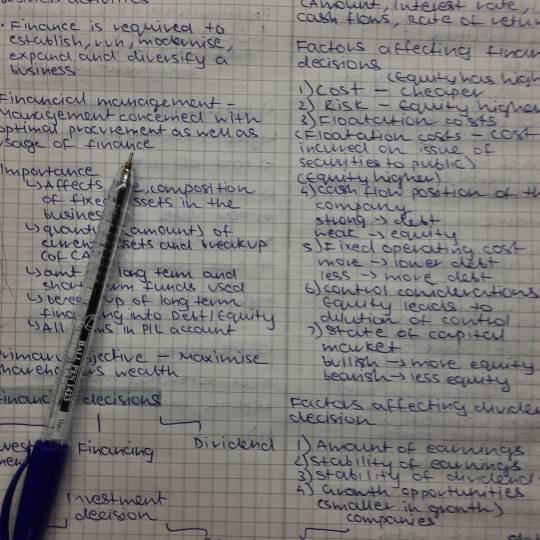 business activities
• Finance is required to
establish, run, modernise,
expand and diversify a
business
Financial management -
Management concerned with
optimal procurement as well as
usage of finance
Importance
↳ Affects composition
of fixed assets in the
business
↳ quantum (amount) of
current assets and breakup
(of CA)
↳ amt long term and
short term funds used
↳ break up of long term
financing into Debt/Equity
↳ All items in P/L account
Primary objective - Maximise
shareholders wealth
Financial decisions
Investment Financing Dividend
Investment
decision
(Amount, Interest rate,
cash flows, Rate of return
Factors affecting financing
decisions
(Equity has high
1) Cost - cheaper
2) Risk - Equity higher
3) Floatation costs
(Floatation costs - cost
incured on issue of
securities to public)
(Equity higher)
4) cash flow position of the
company
strong → debt
weak → equity
5) Fixed operating cost
more → lower debt
less → more debt
6) control considerations
Equity leads to
dilution of control
7) State of capital
market
bullish → more equity
bearish → less equity
Factors affecting dividend
decision
1) Amount of earnings
2) Stability of earnings
3) Stability of dividend
4) Growth opportunities
(smaller in growth)
companies